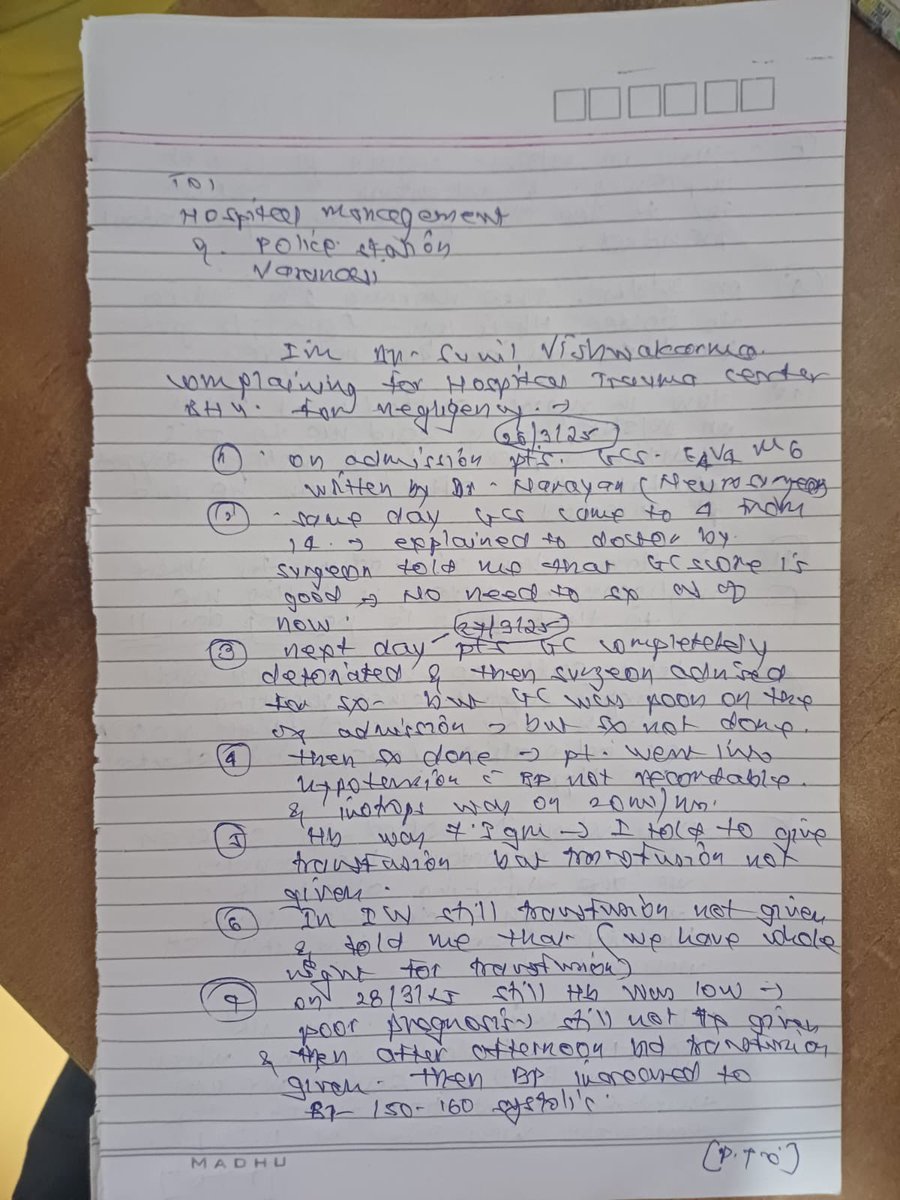 To,
Hospital Management
& Police station
Varanasi
I'm Dr. Sunil Vishwakarma
complaining for Hospital Trauma center
BHU. for negligency. →
26/3/25
(1) on admission pts. GCS - E4V4 M6
written by Dr. Narayan (Neurosurgeon
(2) same day GCS came to 9 from
14. → explained to doctor by
surgeon told me that GC score is
good → No need to sx as of
now.
27/3/25
(3) next day pts GC completely
& then surgeon advised
for sx - but GC was poon on the
of admission → but sx not done.
(4) then sx done → pt. went into
Hypotension c̄ BP not recordable.
& inotops was on 20ml/hr.
(5) Hb was 7.3 gm → I told to give
transfusion but transfusion not
given.
(6) In ICU still transfusion not given
& told me that (we have whole
night for transfusion)
(7) on 28/3/25 still Hb was low →
poor prognosis → still not given
& then after afternoon transfusion
given. then BP increased to
BP- 150-160 systolic.
MADHU
(P.T.O)